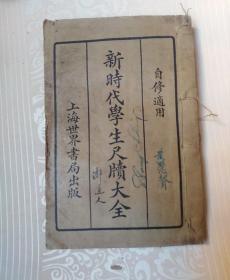 自修適用
新時代學生尺牘大全
上海世界書局出版